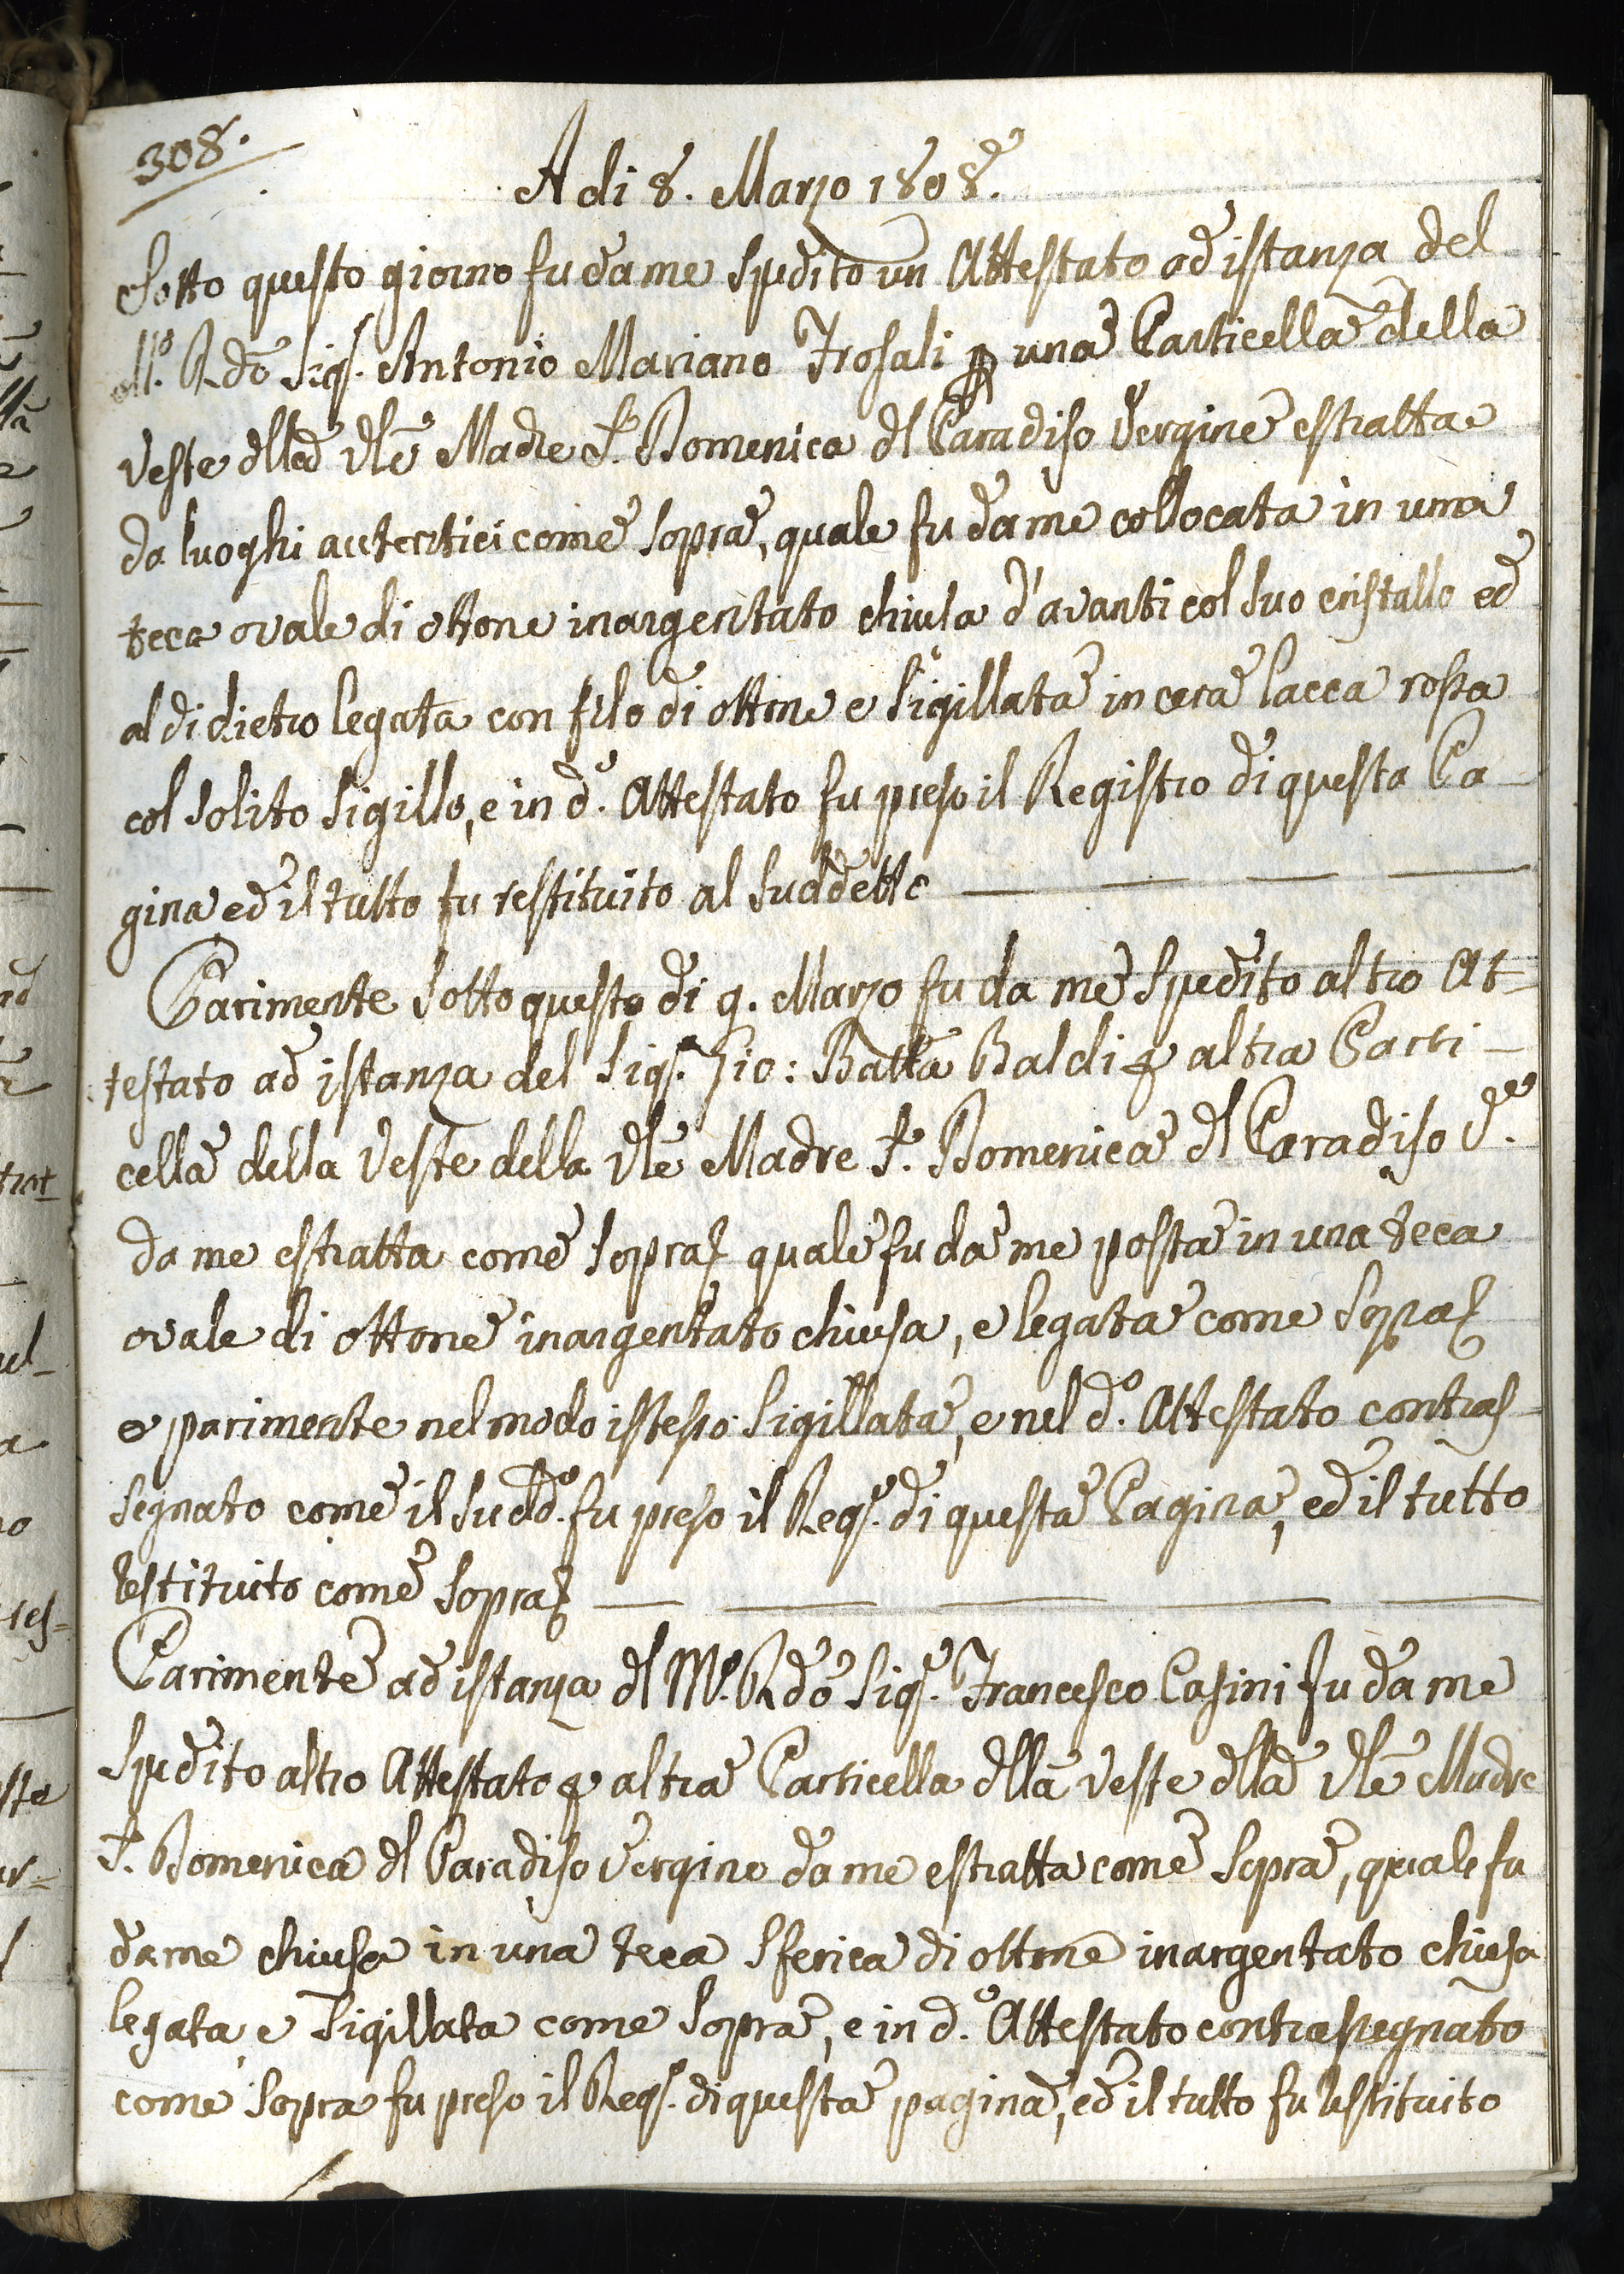 308.
A di 8. Marzo 1808.
Sotto questo giorno fu da me spedito un Attestato ad istanza del
M.º R.dõ Sig.r Antonio Mariano Frosali p una Particella della
Veste dlla Vle Madre S.r Domenica dl Paradiso Vergine estratta
da luoghi autentici come sopra, quale fu da me collocata in una
teca ovale di ottone inargentato chiusa d'avanti col suo cristallo ed
al di dietro legata con filo di ottone e sigillata in cera lacca rossa
col solito sigillo, e in d.º Attestato fu preso il Registro di questa Pa-
gina ed il tutto fu restituito al suddetto
Parimente sotto questo di 9. Marzo fu da me spedito altro At-
testato ad istanza del Sig.r Gio: Batta Baldi p altra Parti-
cella della Veste della Vle Madre S.r Domenica dl Paradiso V.ne
da me estratta come sopra quale fu da me posta in una teca
ovale di ottone inargentato chiusa, e legata come sopra
e parimente nel modo istesso sigillata, e nel d.º Attestato contras-
segnato come il sudd.º fu preso il Reg.º di questa Pagina, ed il tutto
restituito come sopra
Parimente ad istanza dl M.º R.dõ Sig.r Francesco Casini fu da me
spedito altro Attestato p altra Particella dlla Veste dlla Vle Madre
S.r Domenica dl Paradiso Vergine da me estratta come sopra, quale fu
da me chiusa in una teca sferica di ottone inargentato chiusa
legata e sigillata come sopra, e in d.º Attestato contrassegnato
come sopra fu preso il Reg.º di questa pagina, ed il tutto fu restituito